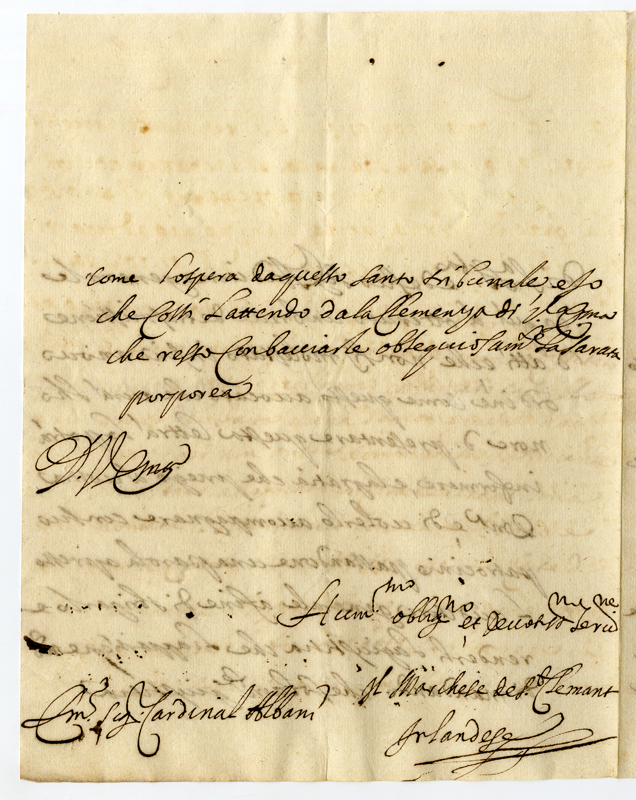 come Sospera da questo santo tribunale, e lo
che Cossi Lattendo dala Clemenza di V. Em.za
che resto Con bacciarle obsequiosam.te La Sacrata
porporea
D. V. Em.za
Hum.mo oblig.mo et devot.mo ser.re
Il Marchese de S.t Clemant
Em.o Sig.r Cardinal Albani
Irlandese